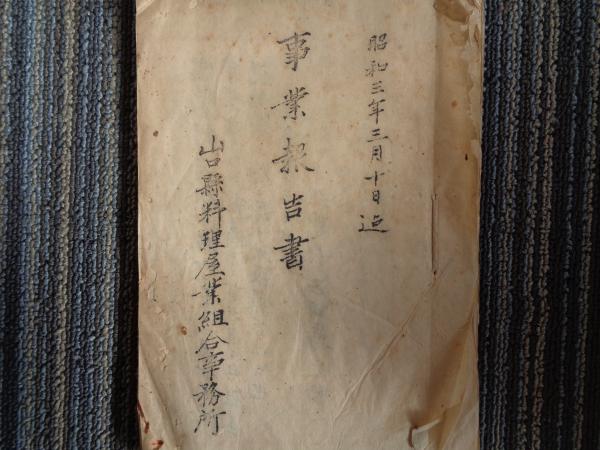 昭和三年三月十日迠
事業報告書
山口縣料理屋業組合事務所